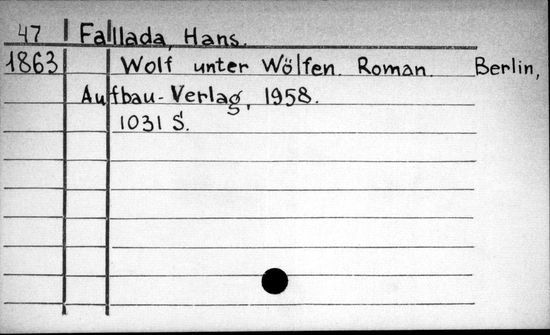 47 Fallada, Hans.
1863 Wolf unter Wölfen. Roman. Berlin,
Aufbau-Verlag, 1958.
1031 S.